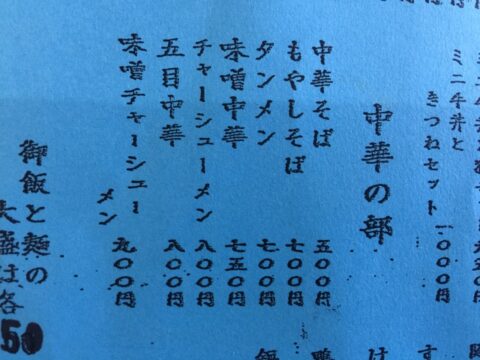 ミニ牛丼と
きつねセット 一〇〇〇円
中華の部
中華そば 五〇〇円
もやしそば 七〇〇円
タンメン 七〇〇円
味噌中華 七五〇円
チャーシューメン 八〇〇円
五目中華 八〇〇円
味噌チャーシュー
メン 九〇〇円
御飯と麺の
大盛は各
50